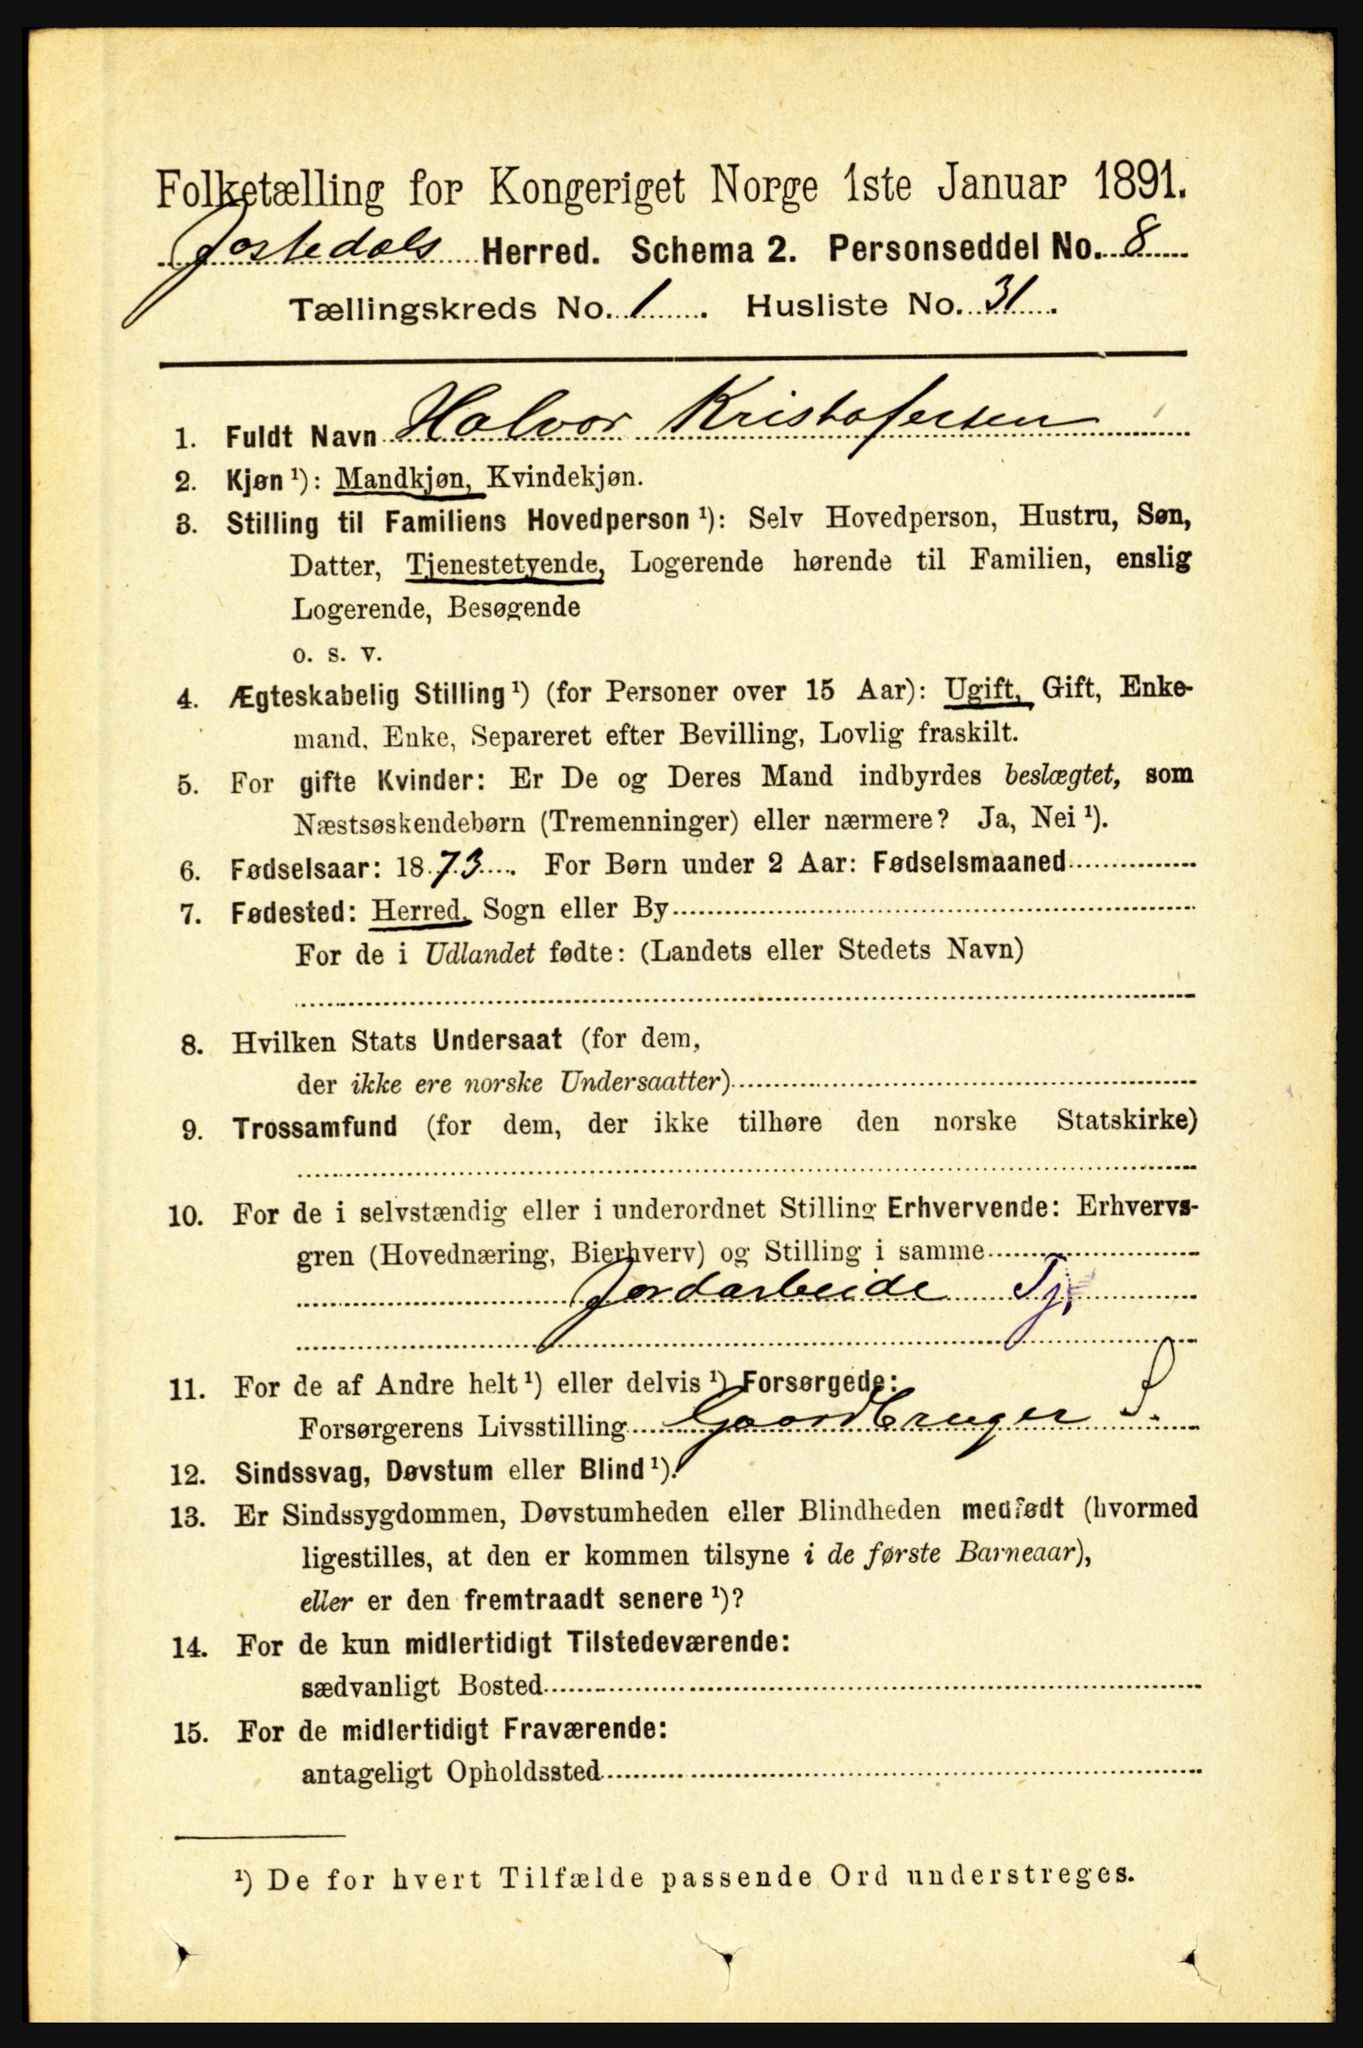 Folketælling for Kongeriget Norge 1ste Januar 1891.
Jostedals Herred. Schema 2. Personseddel No. 8
Tællingskreds No. 1. Husliste No. 31.
1. Fuldt Navn Halvor Kristofersen
2. Kjøn ¹): Mandkjøn, Kvindekjøn.
3. Stilling til Familiens Hovedperson ¹): Selv Hovedperson, Hustru, Søn,
Datter, Tjenestetyende, Logerende hørende til Familien, enslig
Logerende, Besøgende
o. s. v.
4. Ægteskabelig Stilling ¹) (for Personer over 15 Aar): Ugift, Gift, Enke-
mand, Enke, Separeret efter Bevilling, Lovlig fraskilt.
5. For gifte Kvinder: Er De og Deres Mand indbyrdes beslægtet, som
Næstsøskendebørn (Tremenninger) eller nærmere? Ja, Nei ¹).
6. Fødselsaar: 1873. For Børn under 2 Aar: Fødselsmaaned
7. Fødested: Herred, Sogn eller By
For de i Udlandet fødte: (Landets eller Stedets Navn)
8. Hvilken Stats Undersaat (for dem,
der ikke ere norske Undersaatter)
9. Trossamfund (for dem, der ikke tilhøre den norske Statskirke)
10. For de i selvstændig eller i underordnet Stilling Erhvervende: Erhvervs-
gren (Hovednæring, Bierhverv) og Stilling i samme
Jordarbeide Tj.
11. For de af Andre helt ¹) eller delvis ¹) Forsørgede:
Forsørgerens Livsstilling Gaardbruger S.
12. Sindssvag, Døvstum eller Blind ¹).
13. Er Sindssygdommen, Døvstumheden eller Blindheden medfødt (hvormed
ligestilles, at den er kommen tilsyne i de første Barneaar),
eller er den fremtraadt senere ¹)?
14. For de kun midlertidigt Tilstedeværende:
sædvanligt Bosted
15. For de midlertidigt Fraværende:
antageligt Opholdssted
¹) De for hvert Tilfælde passende Ord understreges.